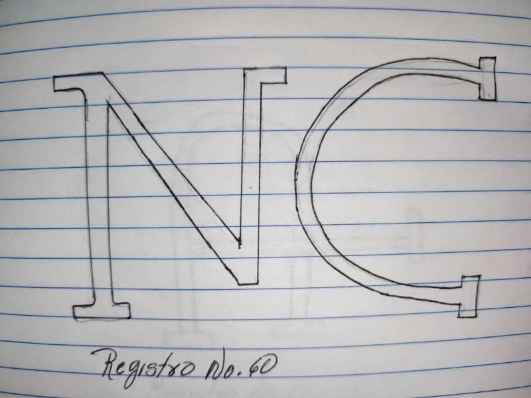 NC
Registro No. 60